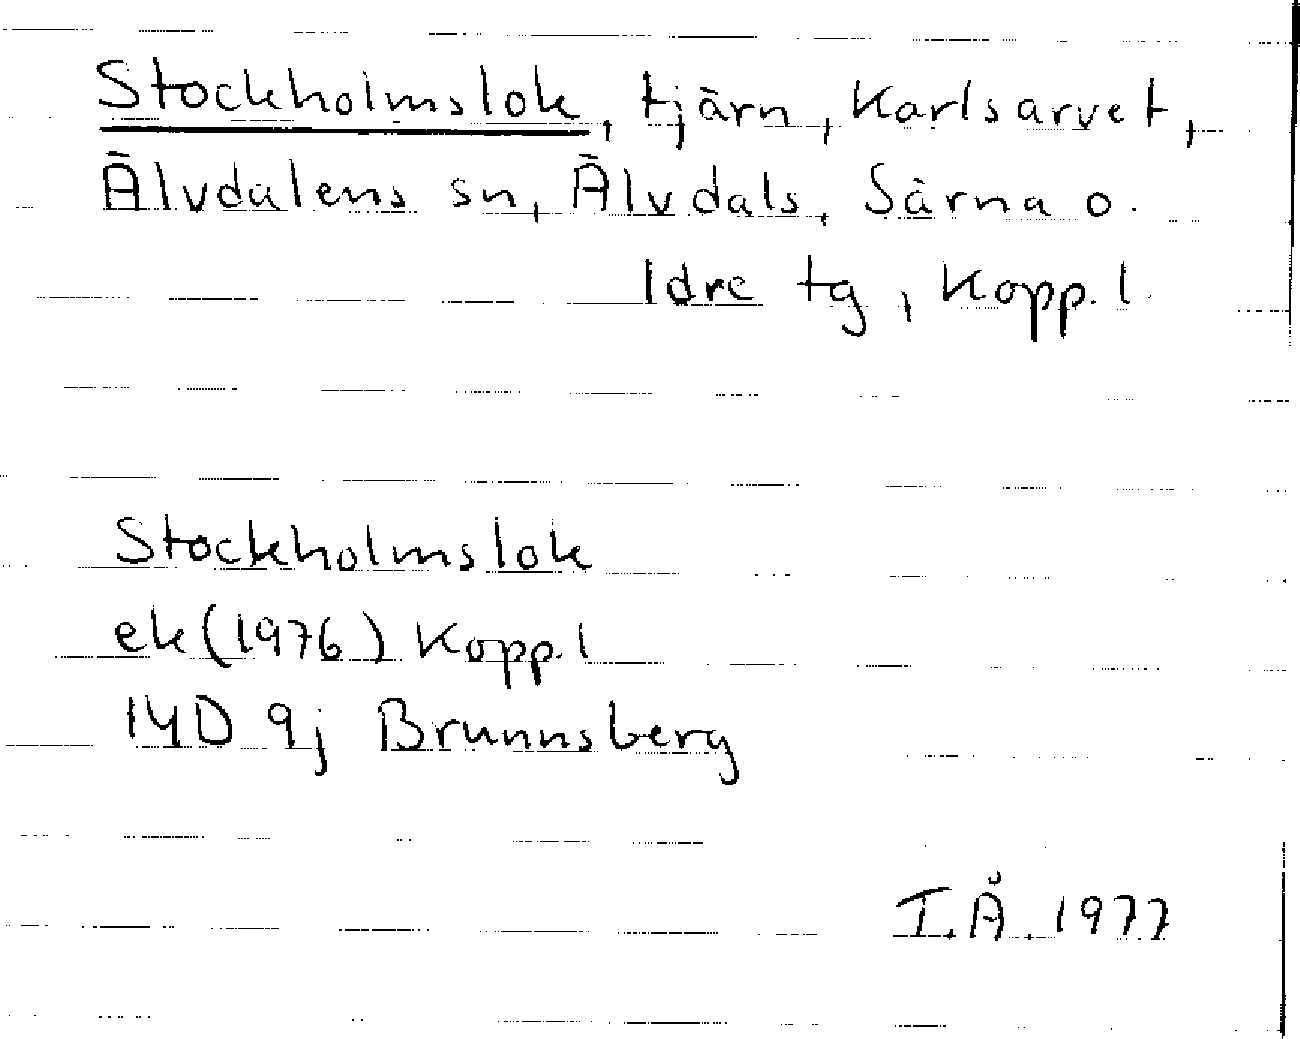 Stockholmslok, tjärn, Karlsarvet,
Älvdalens sn, Älvdals, Särna o.
Idre tg, Kopp. l.
Stockholmslok
ek (1976) Kopp. l
14D 9j Brunnsberg
I.Å. 1977